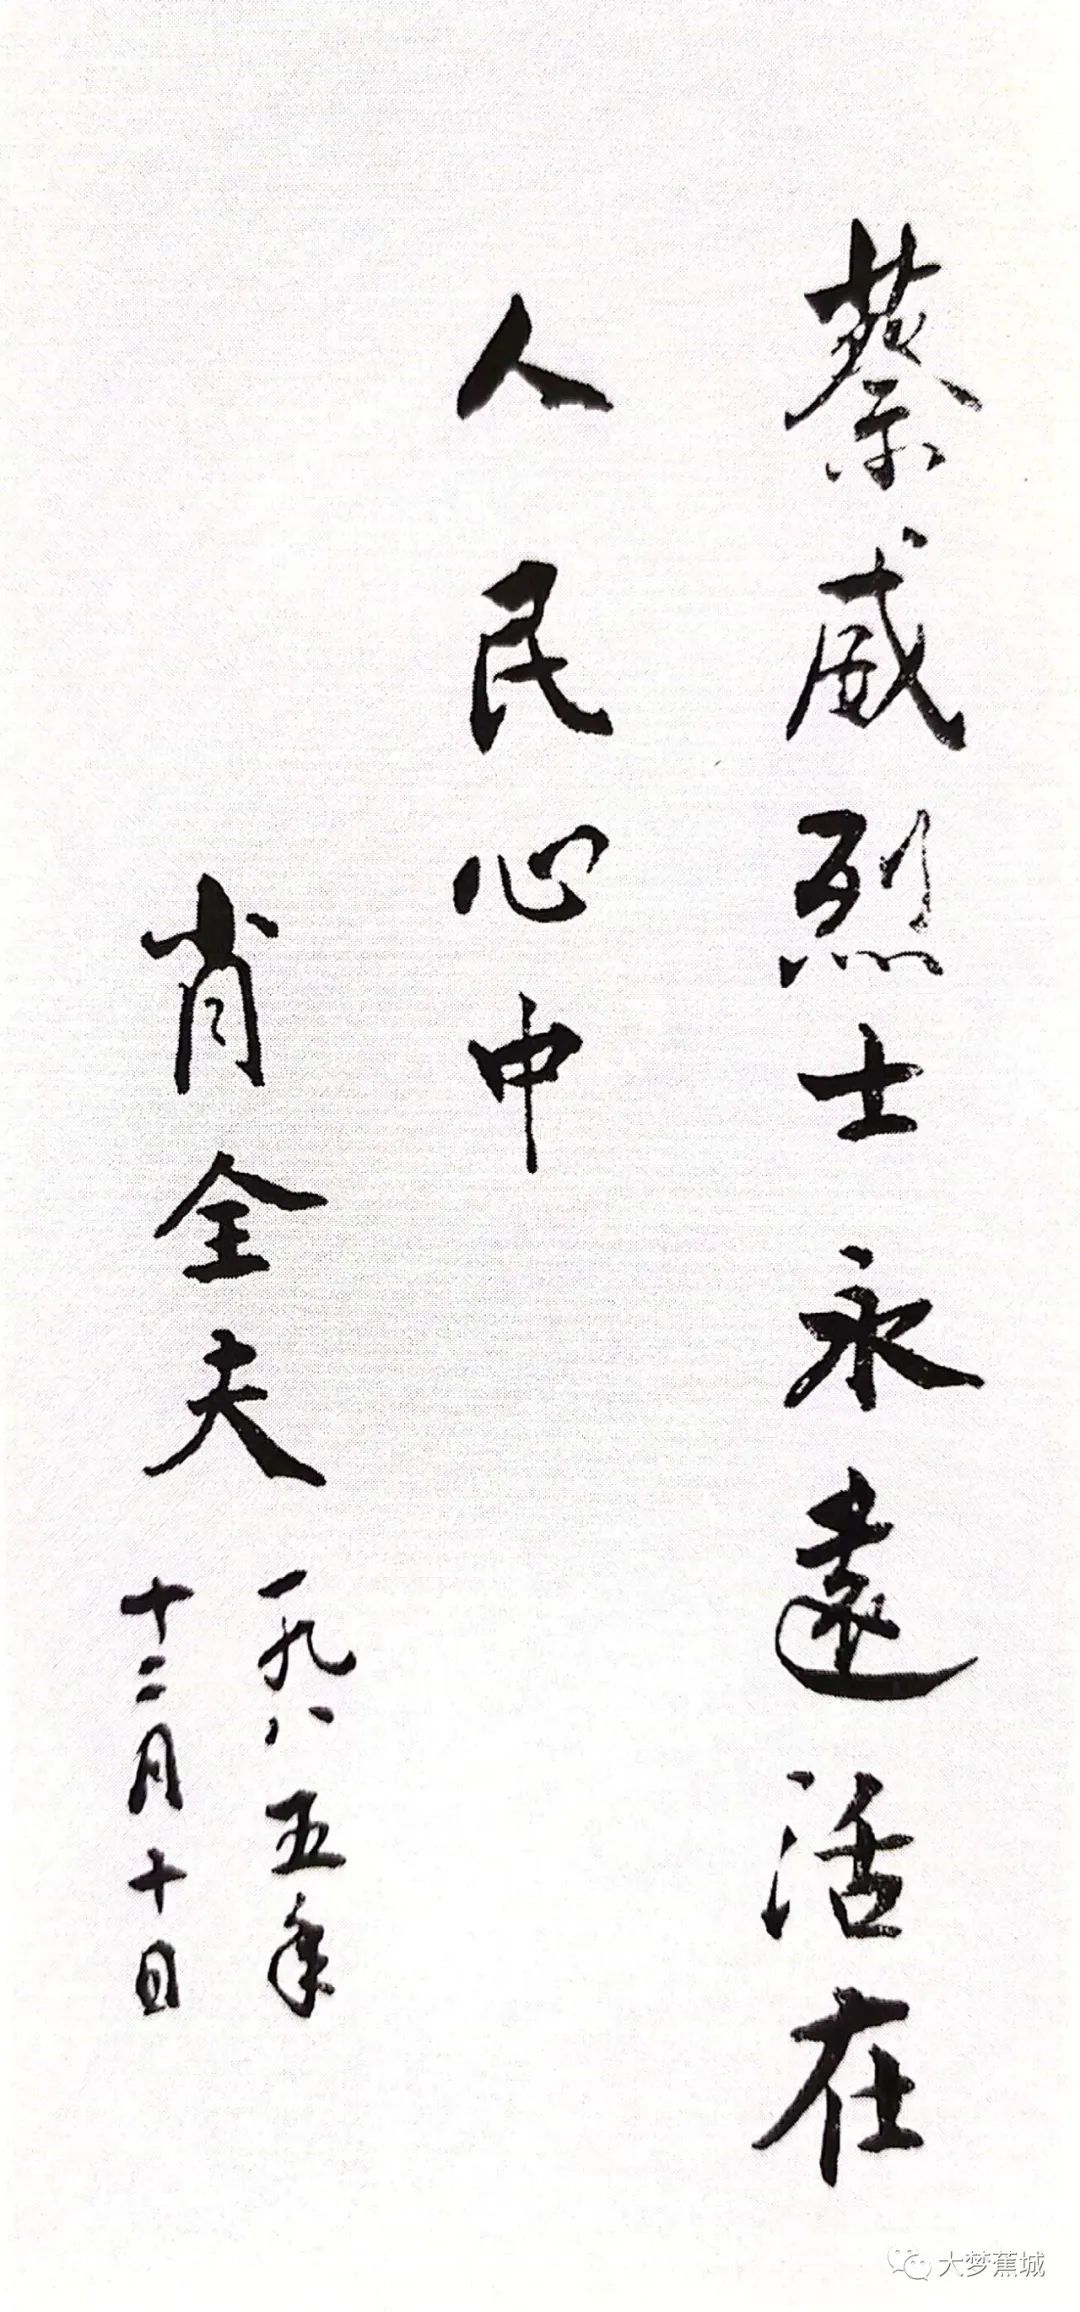 蔡威烈士永遠活在
人民心中
肖全夫
一九八五年
十二月十日
大梦蕉城